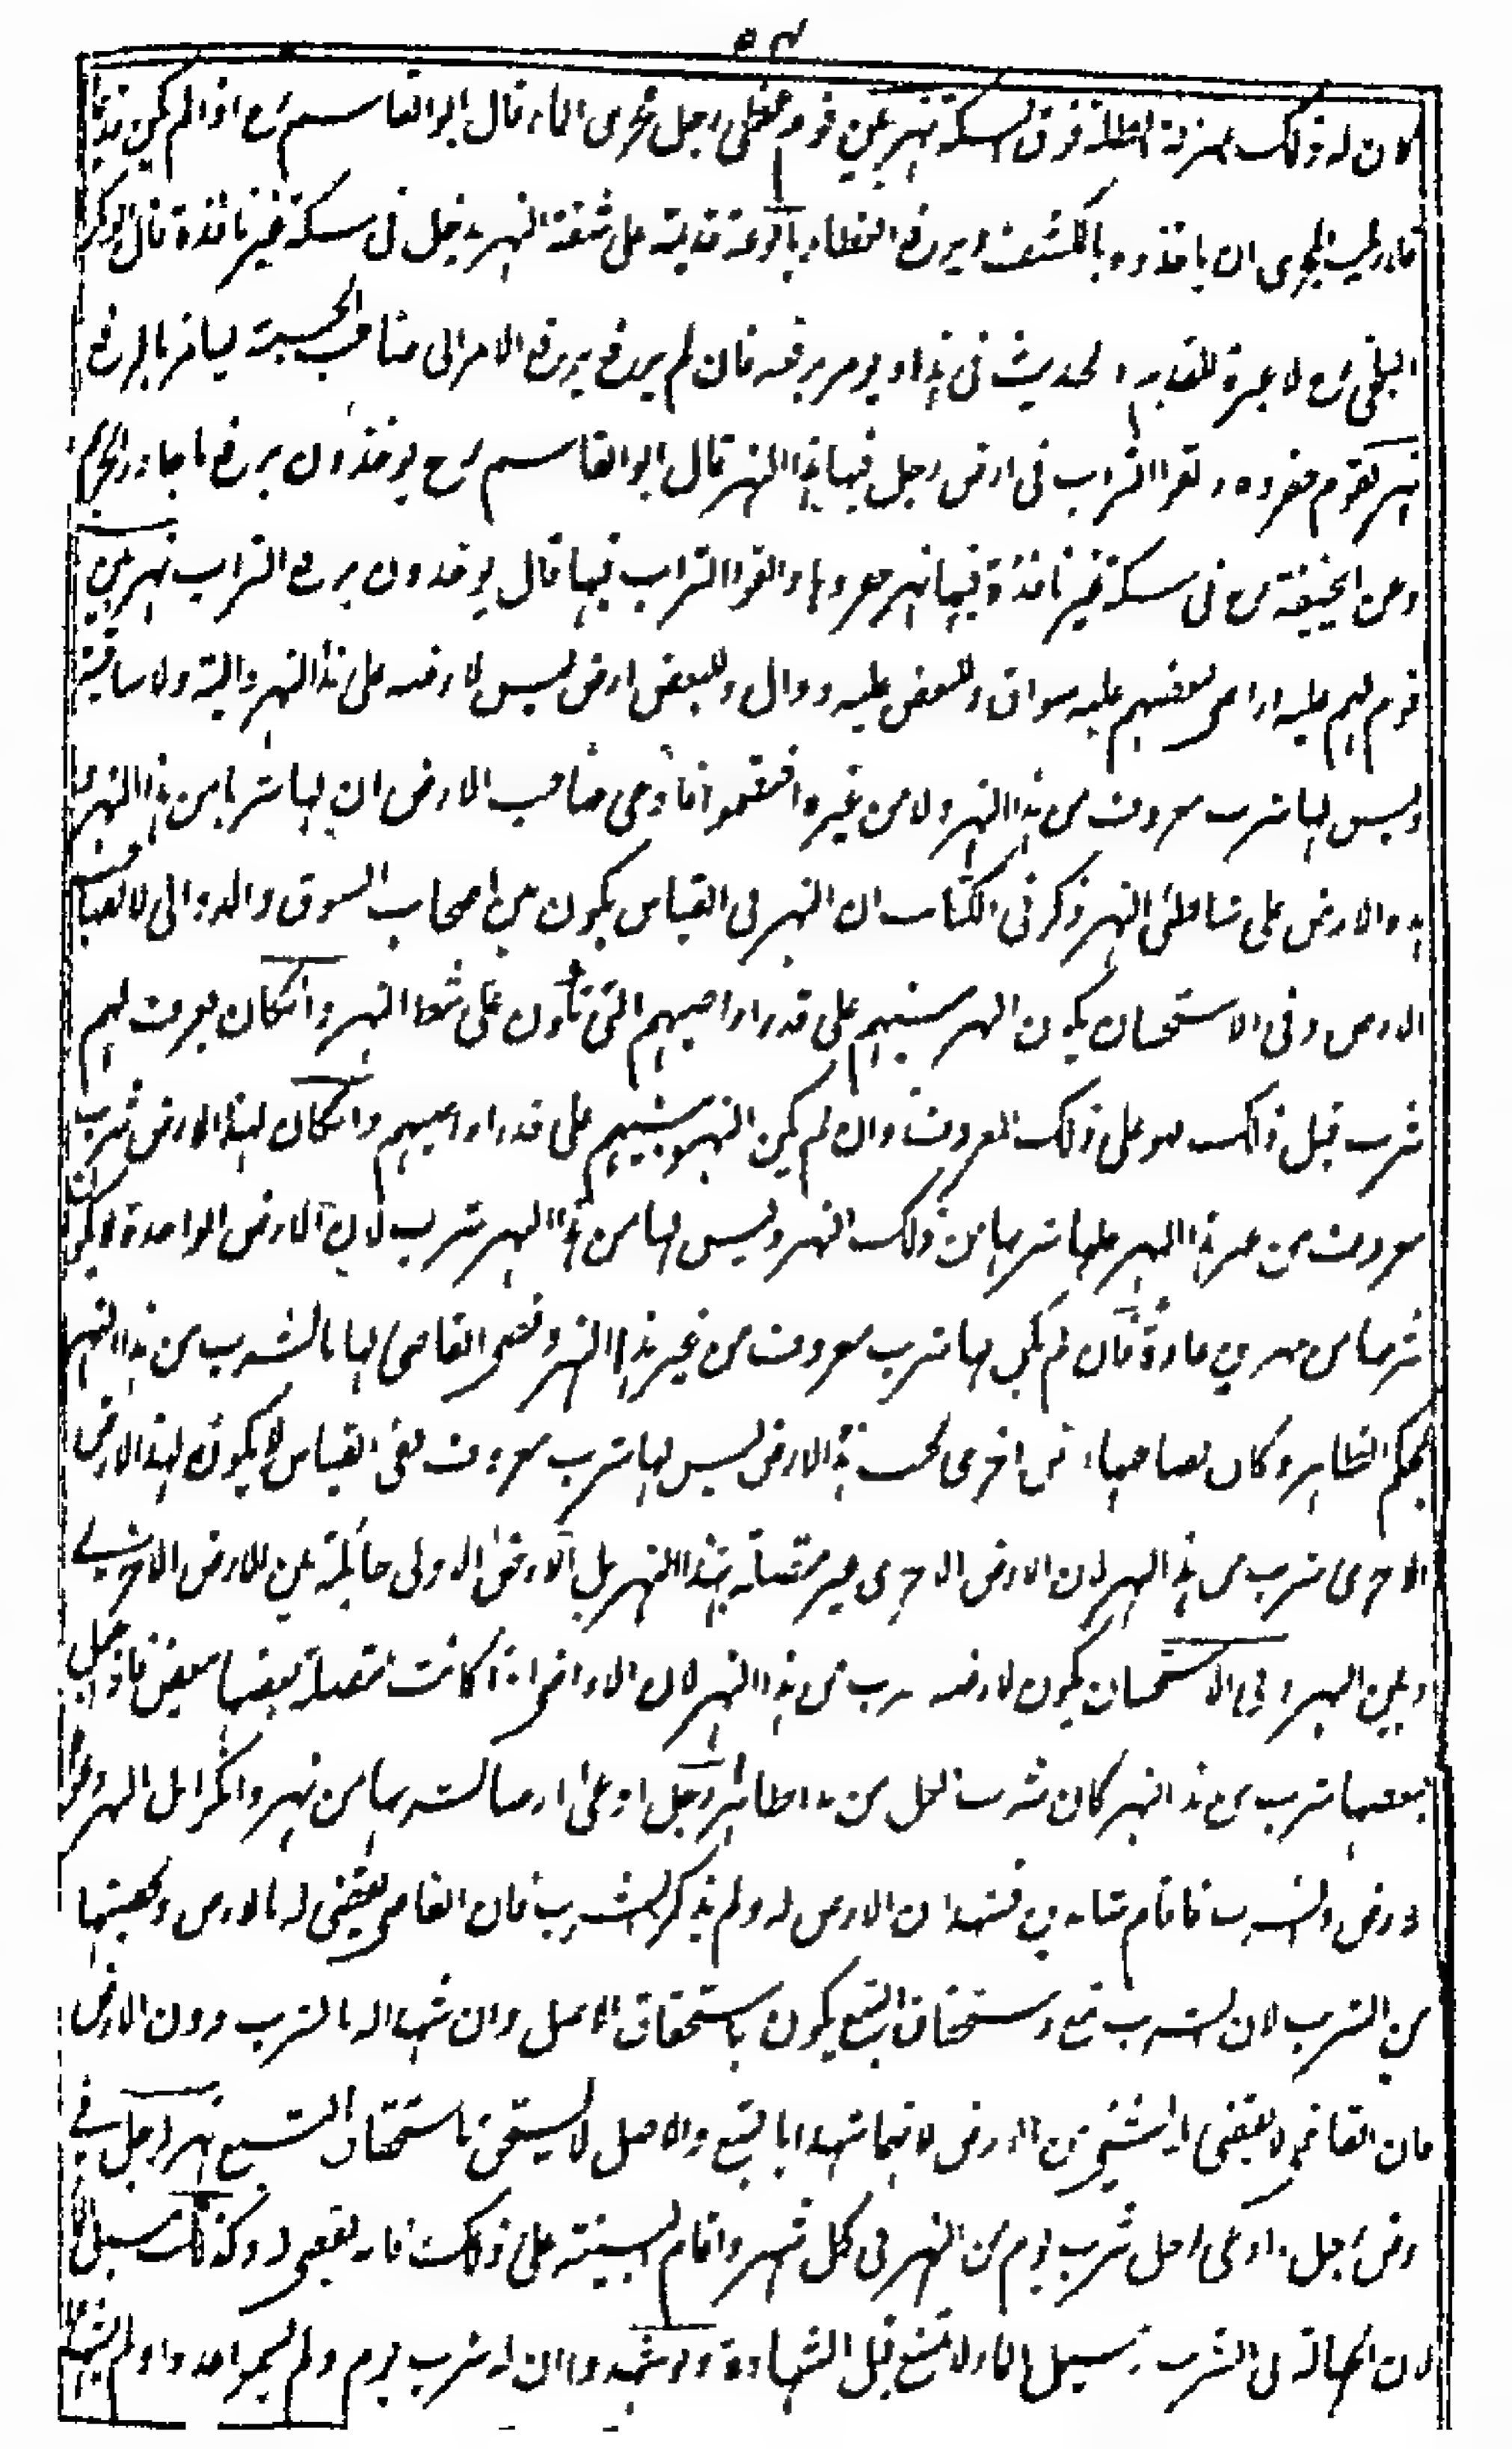 كان له ذلك بمنزلة الظلة فوق السكة نهر بين قوم فغطى رجل مجرى الماء قال ابو القاسم رح اذا لم يكن قديما
فلارباب المجرى ان ياخذوه بالكشف ويرفع الغطاء بالوعة قديمة على شفة النهر يدخل فى سكة غير نافذة قال ابو بكر
البلخى رح لا عبرة للقديم والحديث فى هذا ويؤمر برفعه فان لم يرفع يرفع الامر الى صاحب الحسبة ليامر بالرفع
نهر لقوم حفروه والقوا التراب فى ارض رجل فيها هذا النهر قال ابو القاسم رح يؤخذون برفع ما جاوز الحريم
وعن ابيحنيفة رح فى سكة غير نافذة فيها نهر حفروها والقوا التراب فيها قال يؤخذون برفع التراب نهر بين
قوم لهم عليه اراضى لبعضهم عليه سواق ولبعض عليه دوال وللبعض ارض ليس لارضه على هذا النهر دالية ولا ساقية
وليس لها شرب معروف من هذا النهر ولا من غيره اختصموا فادعى صاحب الارض ان لها شربا من هذا النهر
هذه الارض على شاطئ النهر ذكر فى الكتاب ان النهر فى القياس يكون بين اصحاب السوق والدوالى لا لصاحب
الارض وفى الاستحسان يكون النهر بينهم على قدر اراضيهم التى تكون على شط النهر وان كان يعرف لهم
شرب قبل ذلك فهو على ذلك المعروف وان لم يكن النهر بينهم على قدر اراضيهم وان كان لهذا الارض شرب
معروف من غير هذا النهر فلها شربها من ذلك النهر وليس لها من هذا النهر شرب لان الارض الواحدة لا يكون
شربها من نهرين عادة فان لم يكن لها شرب معروف من غير هذا النهر وقضى القاضى لها بالشرب من هذا النهر
بحكم الظاهر وكان لصاحبها ارض اخرى بجنب هذا الارض ليس لها شرب معروف ففى القياس لا يكون لهذا الارض
الاخرى شرب من هذا النهر لان الارض الاخرى غير متصلة بهذا النهر بل الارض الاولى حائلة بين الارض الاخرى
وبين النهر وفى الاستحسان يكون لارضه شرب من هذا النهر لان الاراضى اذا كانت متصلة بعضها ببعض فاذا جعل
لبعضها شرب من هذا النهر كان شرب الكل من هذا ظاهرا رجل ادعى ارضا لشربها من نهر وانكر اهل النهر
الارض والشرب فاقام شاهدين فشهدا ان الارض له ولم يذكرا الشرب فان القاضى يقضى له بالارض وبحصتها
من الشرب لان الشرب تبع واستحقاق التبع يكون باستحقاق الاصل وان شهدا له بالشرب دون الارض
فان القاضى لا يقضى له بشئ من الارض لانهما شهدا بالتبع والاصل لا يستحق باستحقاق التبع نهر لرجل فى
ارض رجل ادعى رجل شرب يوم من النهر فى كل شهر واقام البينة على ذلك فانه يقضى له وكذلك مسيل الماء
لان الجهالة فى الشرب ومسيل الماء لا تمنع قبل الشهادة ولو شهدوا ان له شرب يوم ولم يسموا عددا ولم يشهدوا